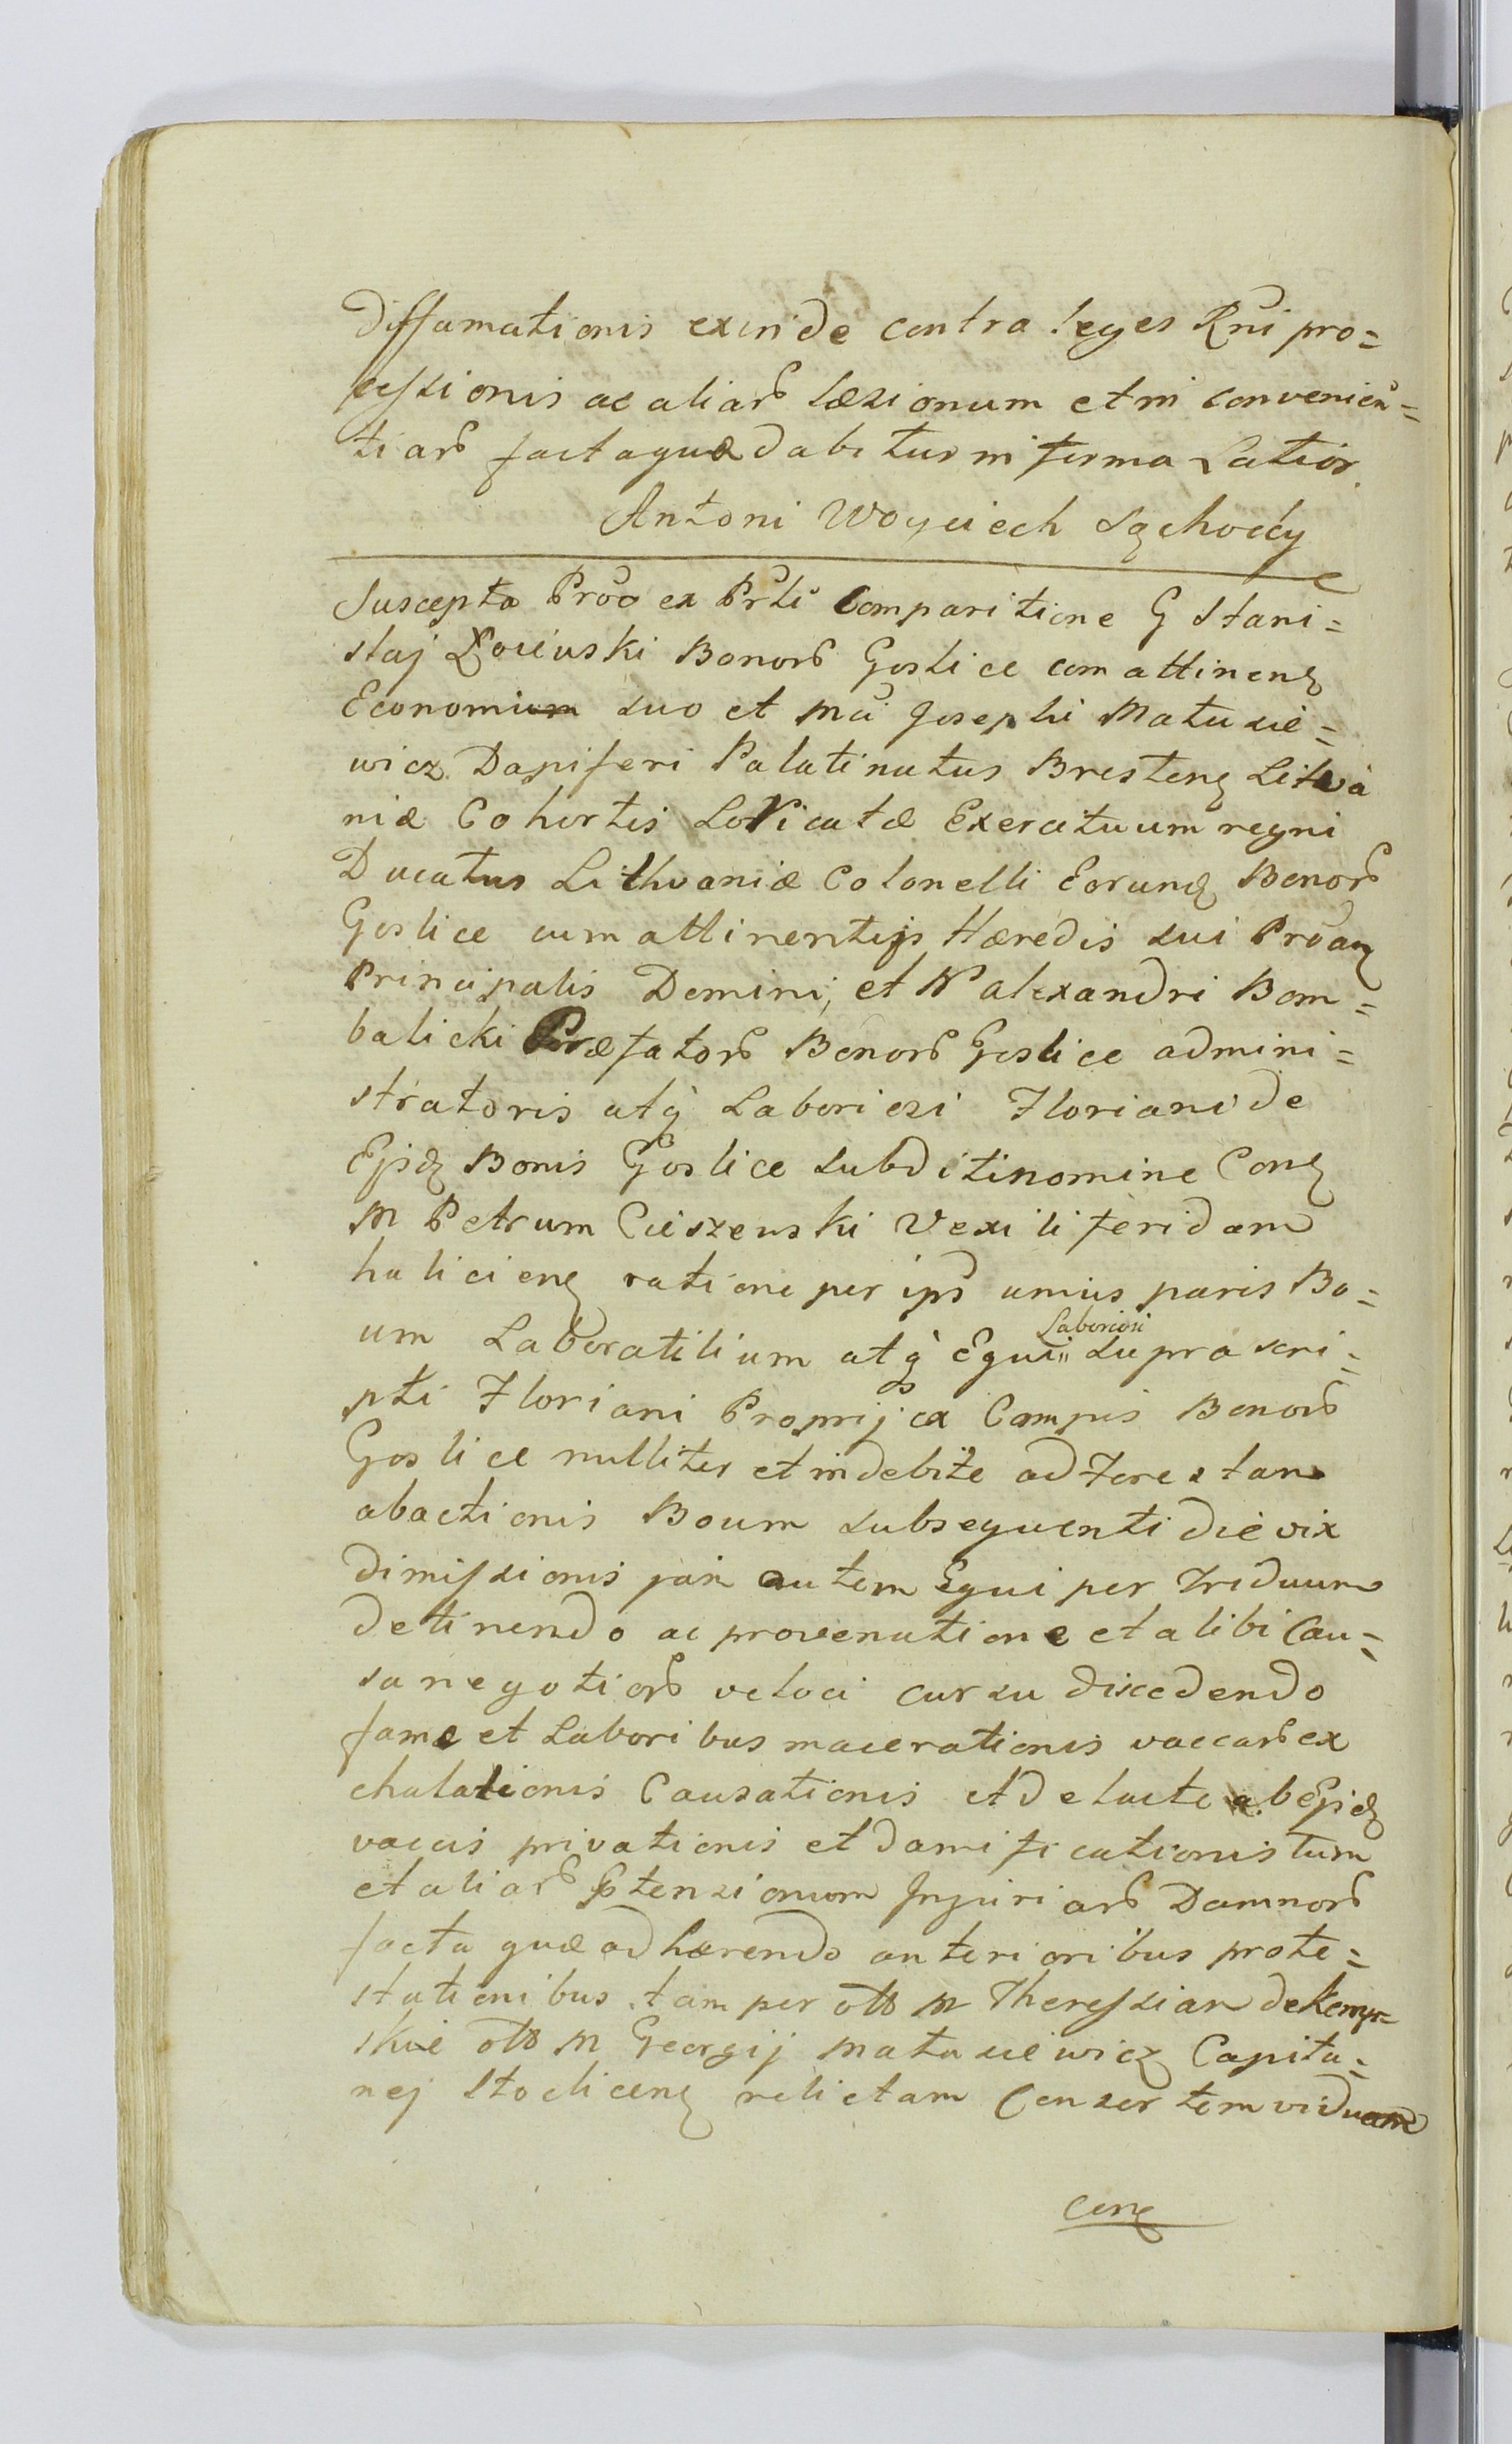 Diffamationis exinde contra leges Rni pro=
cessionis ac aliar læsionum et in convenien=
tiar facta quæ dabitur in forma Latior.
Antoni Woyciech Sąchocky
Suscepta Prõo ex Prti Comparitione G Stani=
slaj Bonor Goslice com attinen
Economium suo et Mci Josephi Matusie=
wicz Dapiferi Palatinatus Bresten Litva
niæ Cohortis Loricatæ Exercituum regni
Ducatus Lithvaniæ Colonelli Eorund Bonor
Goslice cum attinentijs Hæredis sui Proan
Principalis Domini, et N alexandri Bom=
balicki Præfator Bonor Goslice admini=
stratoris atq Laboriosi Floriani de
Ejsd Bonis Goslice subditi nomine Con
M Petrum Cieszewski Vexiliferidam
halicien rationi per ips unius paris Bo=
um Laboratilium atq Equi Laboriosi supra scri=
pti Floriani Proprij ex Campis Bonor
Goslice nulliter et indebite ad Forestam
abactionis Boum subsequenti die vix
dimissionis jam autem Equi per Triduum
detinendo ac provenatione et alibi Cau=
sa negotior veloci cursu discedendo
fame et Laboribus macerationis vaccar ex
chalationis Causationis et de lacte ab Ejsd
vaccis privationis et damificationis tum
et aliar Ptensionum Injuriar Damnor
facta quæ adhærendo anterioribus prote=
stationibus tam per olto M Theressiam de Kemp=
skie olto M Georgij Matusiewicz Capita=
nej Stoklicen relictam Consortem viduam
Con